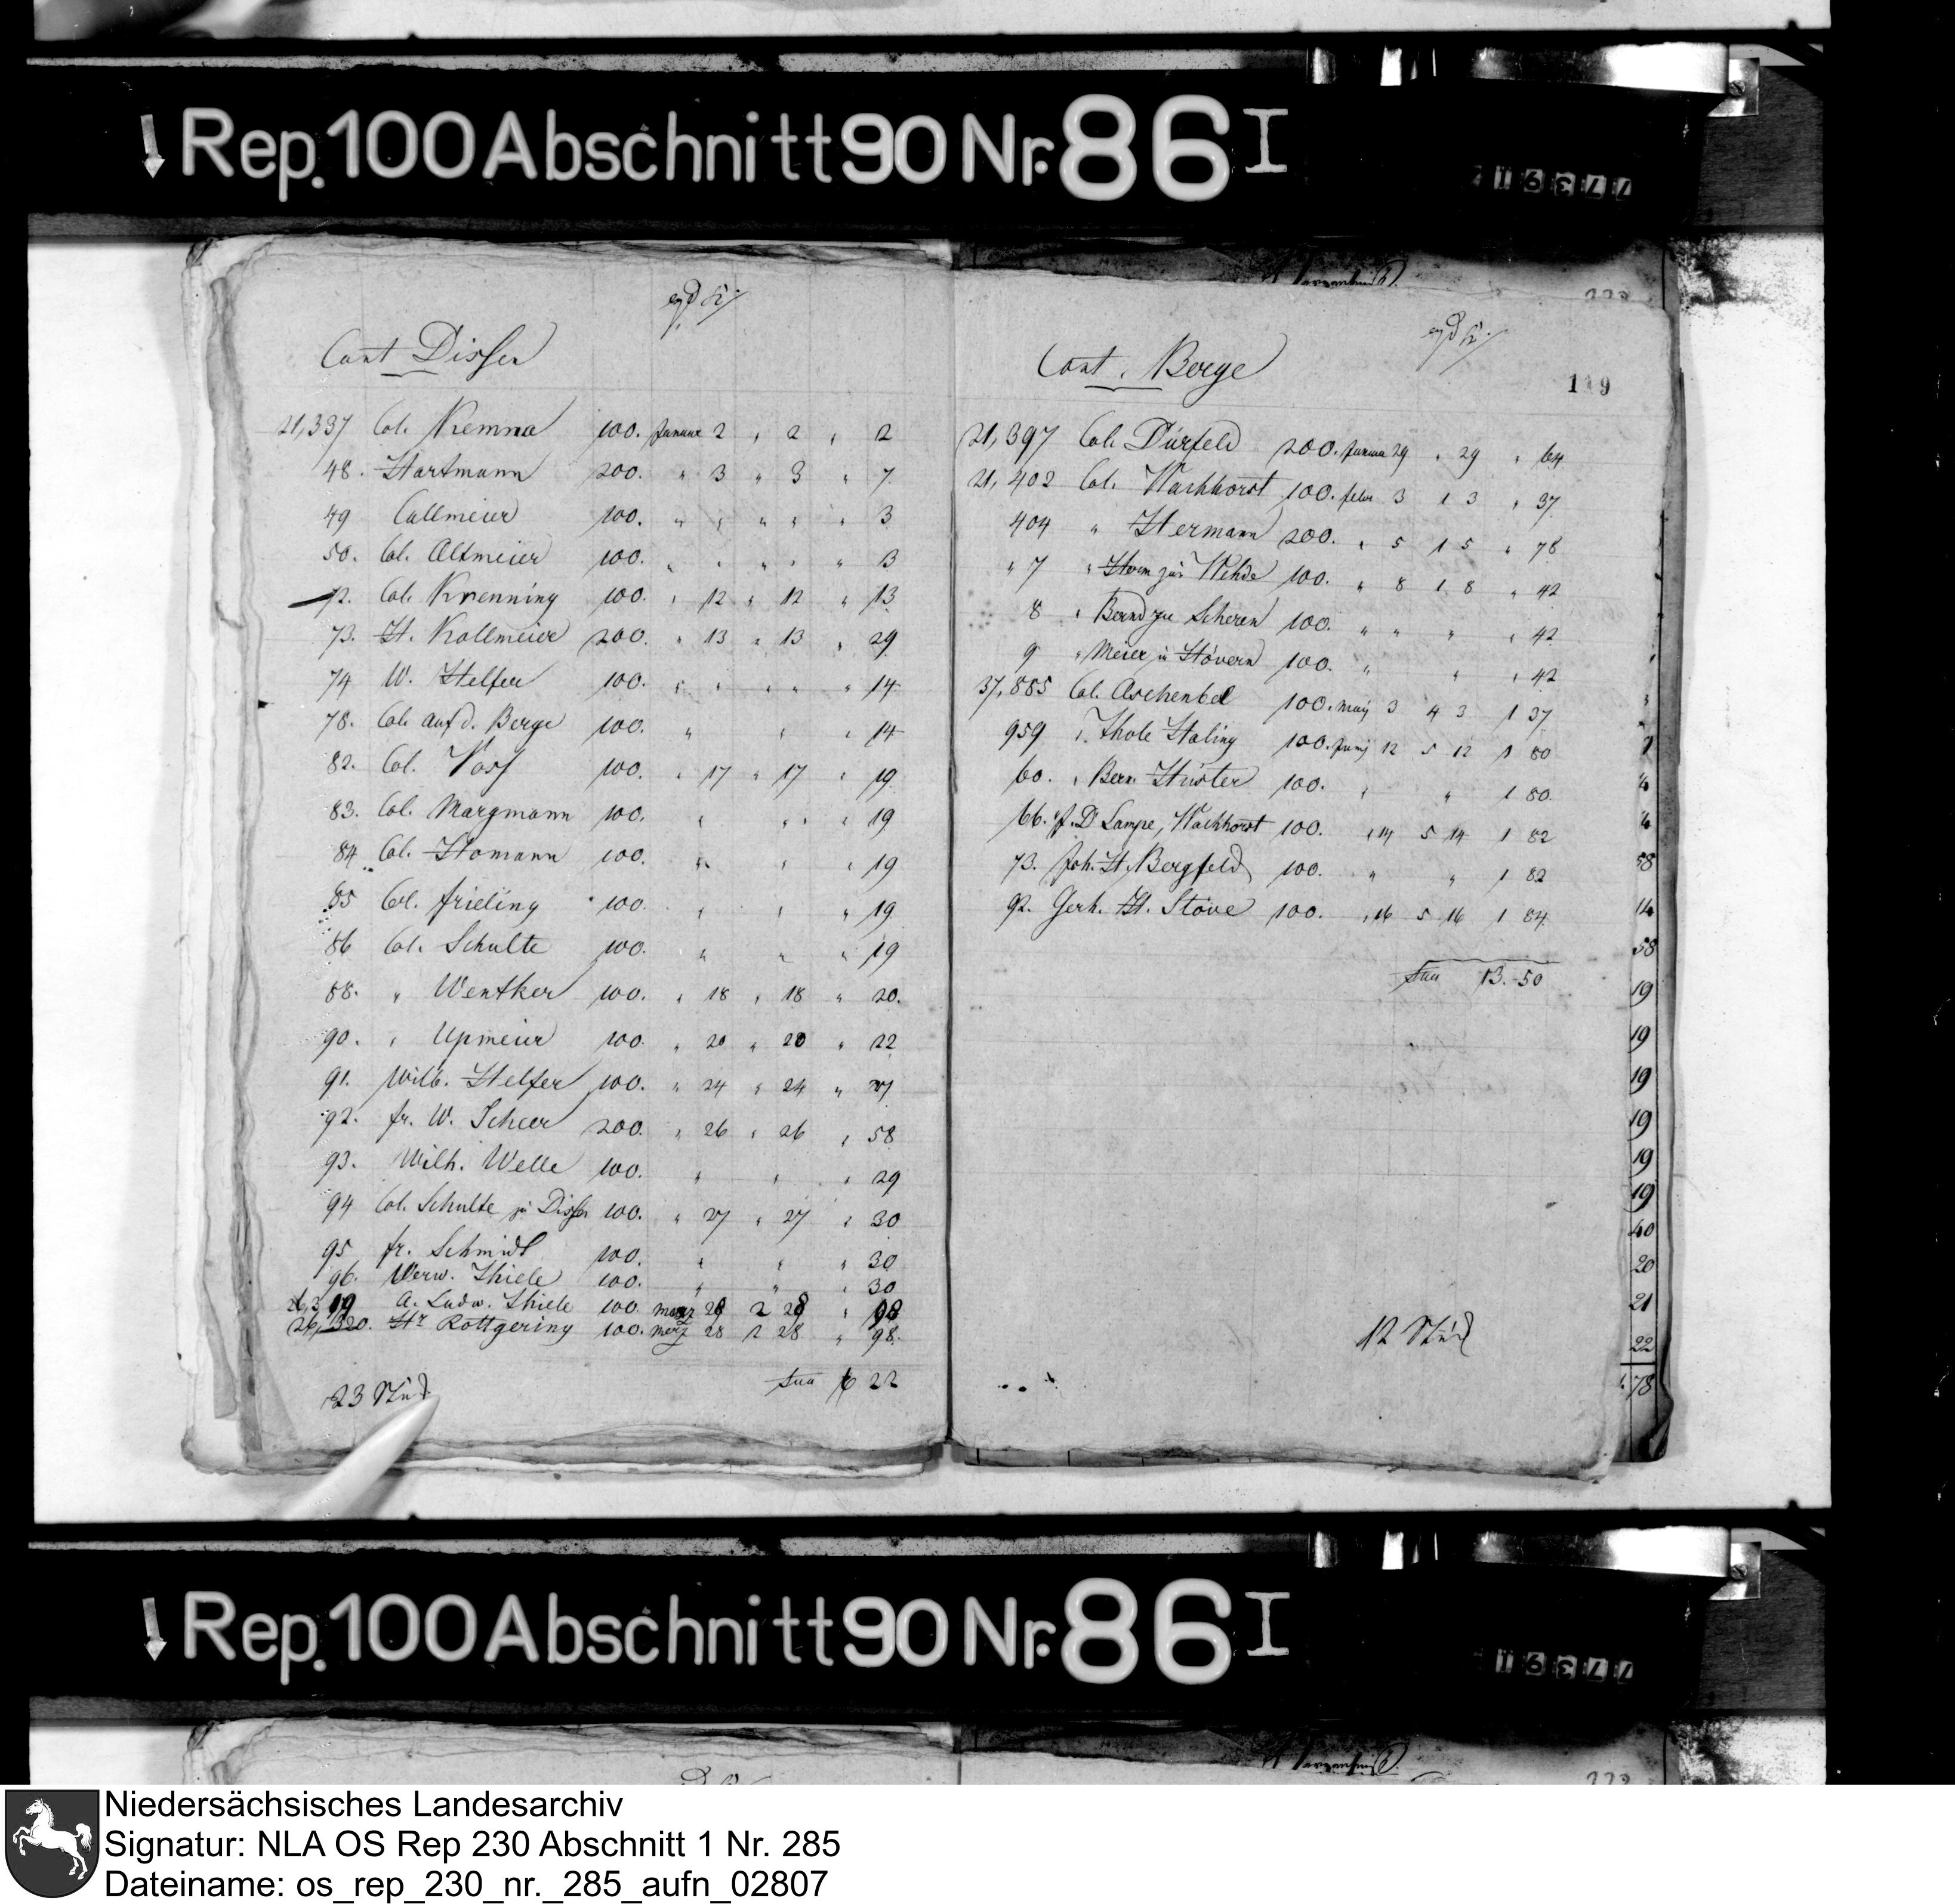 Rep. 100 Abschnitt 90 Nr. 86 I
77391
Cant Dissen
21,337 Col. Kemna 100. Januar 2 " 2 " 2
48. Hartmann 200. " 3 " 3 " 7
49 Callmeier 100. " " " " " 3
50. Col. Altmeier 100. " " " " " 3
72. Col. Krenning 100. " 12 " 12 " 13
73. H. Kollmeier 200. " 13 " 13 " 29
74 W. Helfer 100. " " " " " 14
78. Col. auf d. Berge 100. " " " 14
82. Col. Voss 100. " 17 " 17 " 19
83. Col. Margmann 100. " " " " 19
84. Col. Homann 100. " " " 19
85 Col. Frieling 100. " " " 19
86 Col. Schulte 100. " " " 19
88. " Wentker 100. " 18 " 18 " 20.
90. " Upmeier 100. " 20 " 20 " 22
91. Wilh. Helfer 100. " 24 " 24 " 27
92. fr. W. Scheer 200. " 26 " 26 " 58
93. Wilh. Welle 100. " " " 29
94 Col. Schulte zu Dissen 100. " 27 " 27 " 30
95 fr. Schmidt 100. " " " 30
96. Werw. Thiele 100. " " " 30
26,319 A. Ludw. Thiele 100. 28 2 28 " 98
26,320. Hr Rottgering 100. merz 28 2 28 " 98.
Sua 6 22
23 Stück
119
Cant. Berge
21,397 Col. Dürfeld 200. Januar 29 " 29 " 64
21,402 Col. Wachhorst 100. febr 3 1 3 " 37
404 " Hermann 200. " 5 1 5 " 78
" 7 " Herm zur Wehde 100. " 8 1 8 " 42
8 " Bernd zu Scheren 100. " " " " 42
9 " Meier zu Hövern 100. " " " 42
37,885 Col. Aschenbel 100. may 3 4 3 1 37
959 " Thole Haling 100. Juny 12 5 12 1 80
60. " Bern. Hüster 100. " " 1 80.
66. J. D. Lampe, Wachhorst 100. " 14 5 14 1 82
73. Joh. H. Bergfeld 100. " " 1 82
92. Gerh. H. Stöve 100. " 16 5 16 1 84.
Sua 13. 50
12 Stück
58
14
58
19
19
19
19
19
19
40
20
21
22
78
Rep. 100 Abschnitt 90 Nr. 86 I
77391
Niedersächsisches Landesarchiv
Signatur: NLA OS Rep 230 Abschnitt 1 Nr. 285
Dateiname: os_rep_230_nr._285_aufn_02807